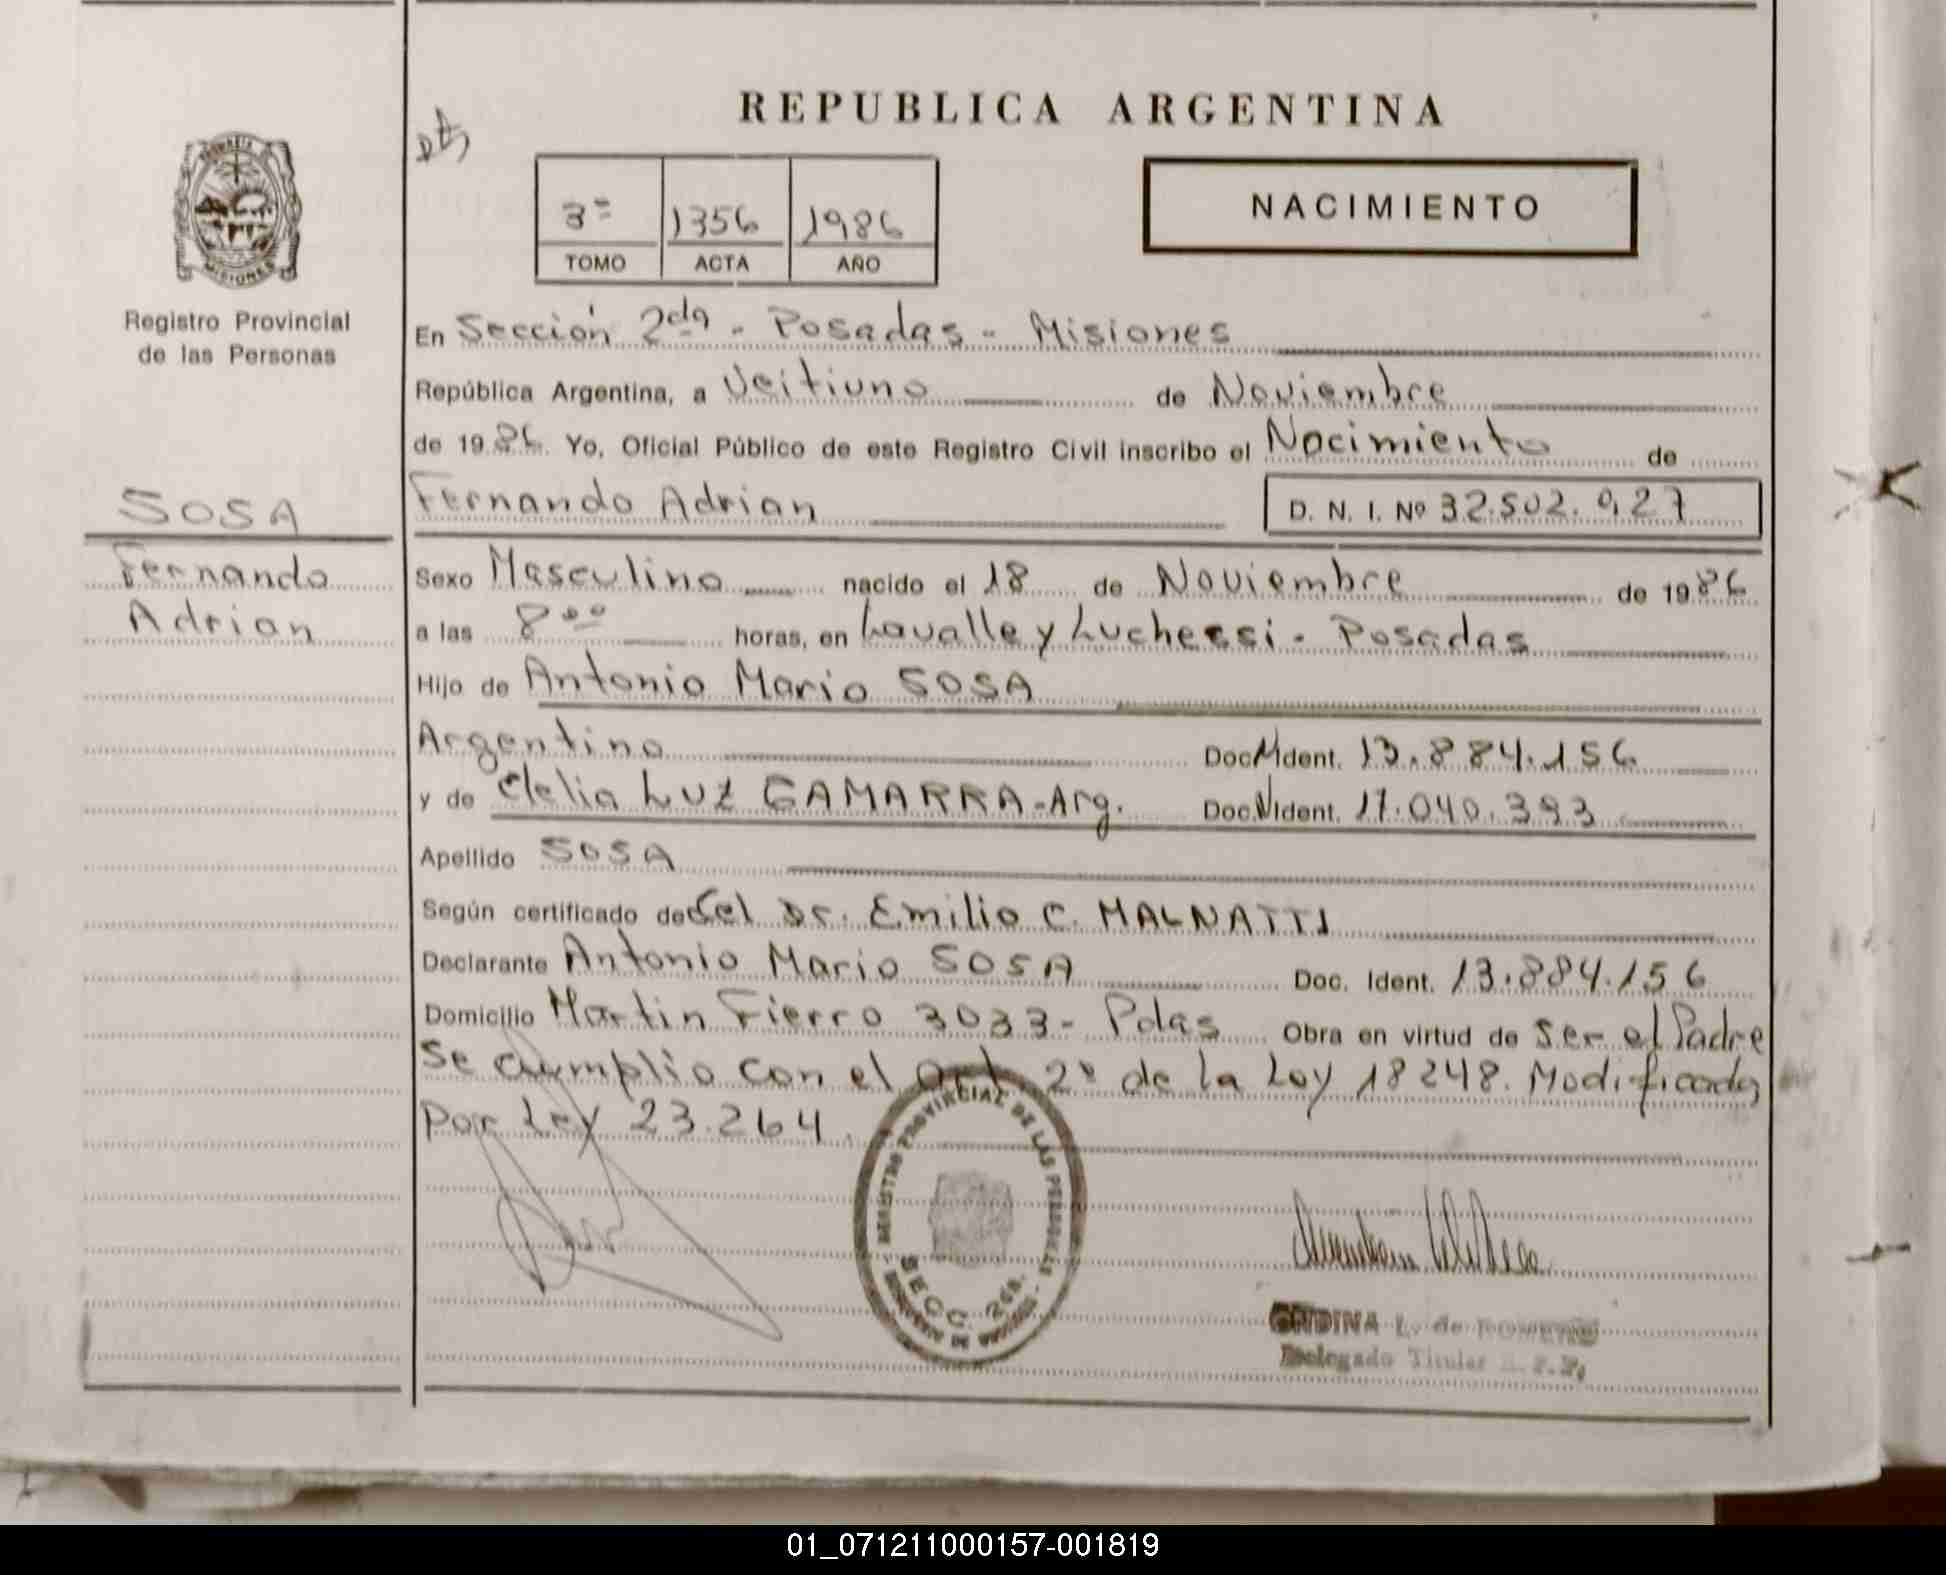 REPUBLICA ARGENTINA
NACIMIENTO
3º 1356 1986
TOMO ACTA AÑO
MISIONES
Registro Provincial
de las Personas
En Sección 2da - Posadas - Misiones
República Argentina, a Veitiuno de Noviembre
de 1986. Yo, Oficial Público de este Registro Civil inscribo el Nacimiento de
SOSA
Fernando Adrian D. N. I. Nº 32.502.927
Fernando
Adrian
Sexo Masculino nacido el 18 de Noviembre de 1986
a las 8 ºº horas, en Lavalle y Luchessi - Posadas
Hijo de Antonio Mario SOSA
Argentino Doc. Ident. 13.884.156
y de Clelia LUZ GAMARRA - Arg. Doc. Ident. 17.040.393
Apellido SOSA
Según certificado de Del Dr. Emilio C. MALNATTI
Declarante Antonio Mario SOSA Doc. Ident. 13.884.156
Domicilio Martin Fierro 3033 - Pdas Obra en virtud de Ser el Padre
Se cumplio con el Art 2º de la Ley 18248. Modificada
por Ley 23.264.
REGISTRO PROVINCIAL DE LAS PERSONAS
SECC. 2da.
L. de
Delegado Titular
01_071211000157-001819